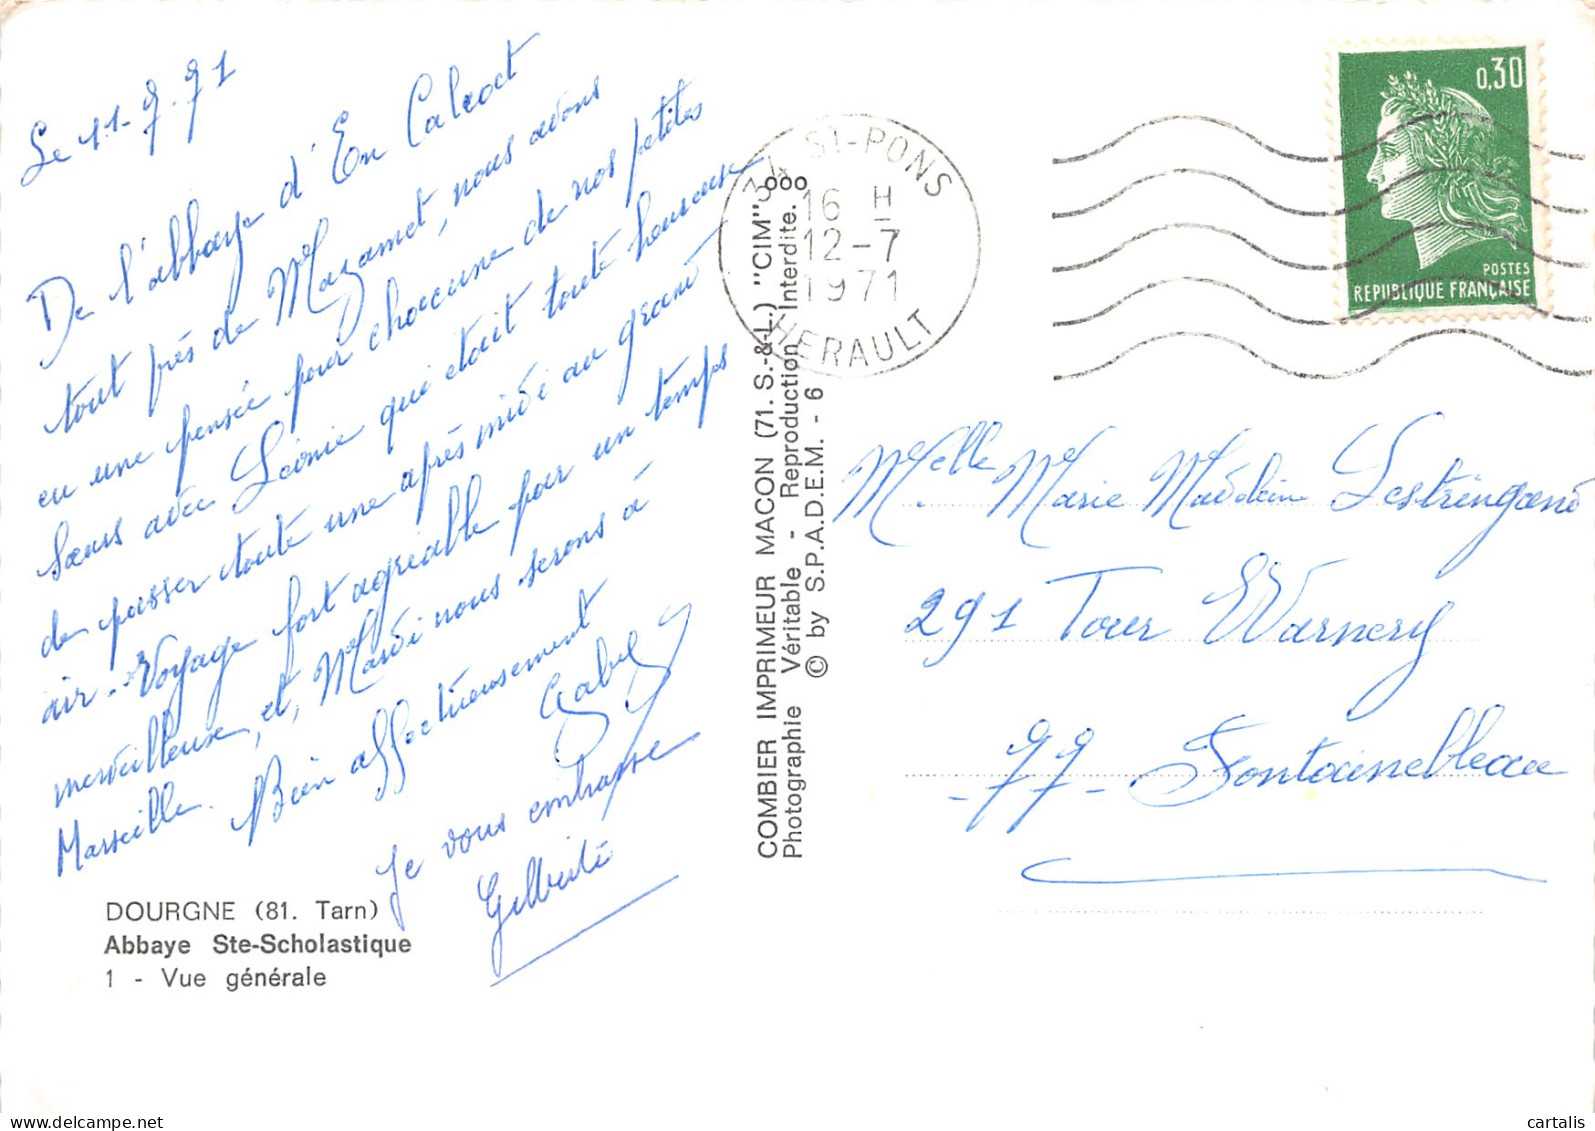 Le 11-7-71
De l'abbaye d'En Calcat
tout près de Mazamet, nous avons
eu une pensée pour chacune de nos petites
soeurs avec Léonie qui était toute heureuse
de passer toute une après midi au grand
air. Voyage fort agréable par un temps
merveilleux, et, Mardi nous serons à
Marseille. Bien affectueusement
Gaby
Je vous embrasse
Gilberte
DOURGNE (81. Tarn)
Abbaye Ste-Scholastique
1 - Vue générale
COMBIER IMPRIMEUR MACON (71. S.-&-L.) "CIM"
Photographie Véritable - Reproduction Interdite.
© by S.P.A.D.E.M. - 6
34 St-PONS
16 H
12-7
1971
HERAULT
0,30
POSTES
REPUBLIQUE FRANÇAISE
Melle Marie Madeleine Lestringand
291 Tour Warnery
-77- Fontainebleau
delcampe.net
cartalis